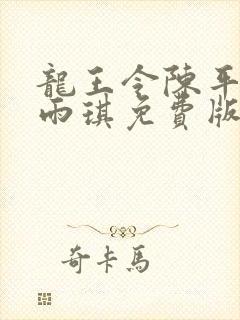 龍王令陳平
雨琪免費版
奇卡馬